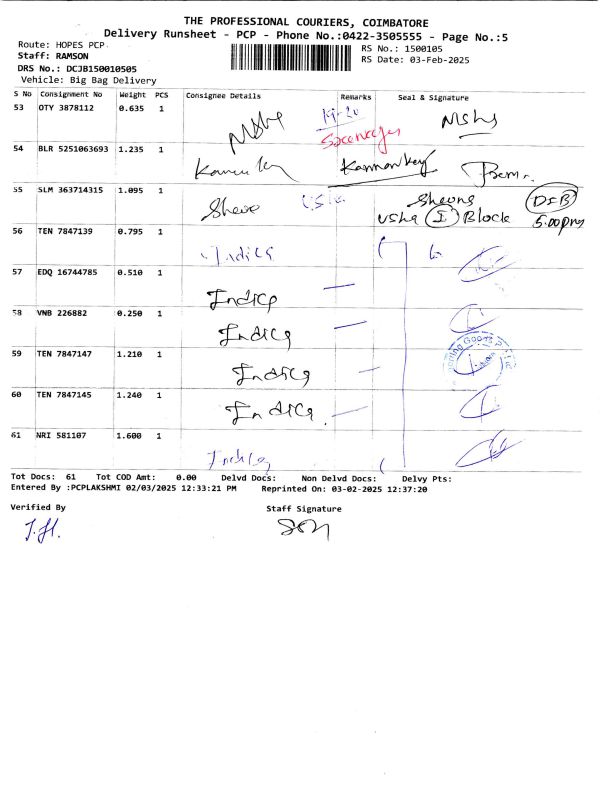 THE PROFESSIONAL COURIERS, COIMBATORE
Delivery Runsheet - PCP - Phone No.:0422-3505555 - Page No.:5
Route: HOPES PCP
RS No.: 1500105
Staff: RAMSON
RS Date: 03-Feb-2025
DRS No.: DCJB150010505
Vehicle: Big Bag Delivery
S No Consignment No Weight PCS Consignee Details Remarks Seal & Signature
53 OTY 3878112 0.635 1
54 BLR 5251063693 1.235 1
55 SLM 363714315 1.095 1
Usha I Block 5.00pm
56 TEN 7847139 0.795 1 Indica
57 EDQ 16744785 0.510 1 Indica
58 VNB 226882 0.250 1 Indica
59 TEN 7847147 1.210 1 Indica
60 TEN 7847145 1.240 1 Indica
61 NRI 581107 1.600 1 Indica
Tot Docs: 61 Tot COD Amt: 0.00 Delvd Docs: Non Delvd Docs: Delvy Pts:
Entered By :PCPLAKSHMI 02/03/2025 12:33:21 PM Reprinted On: 03-02-2025 12:37:20
Verified By Staff Signature